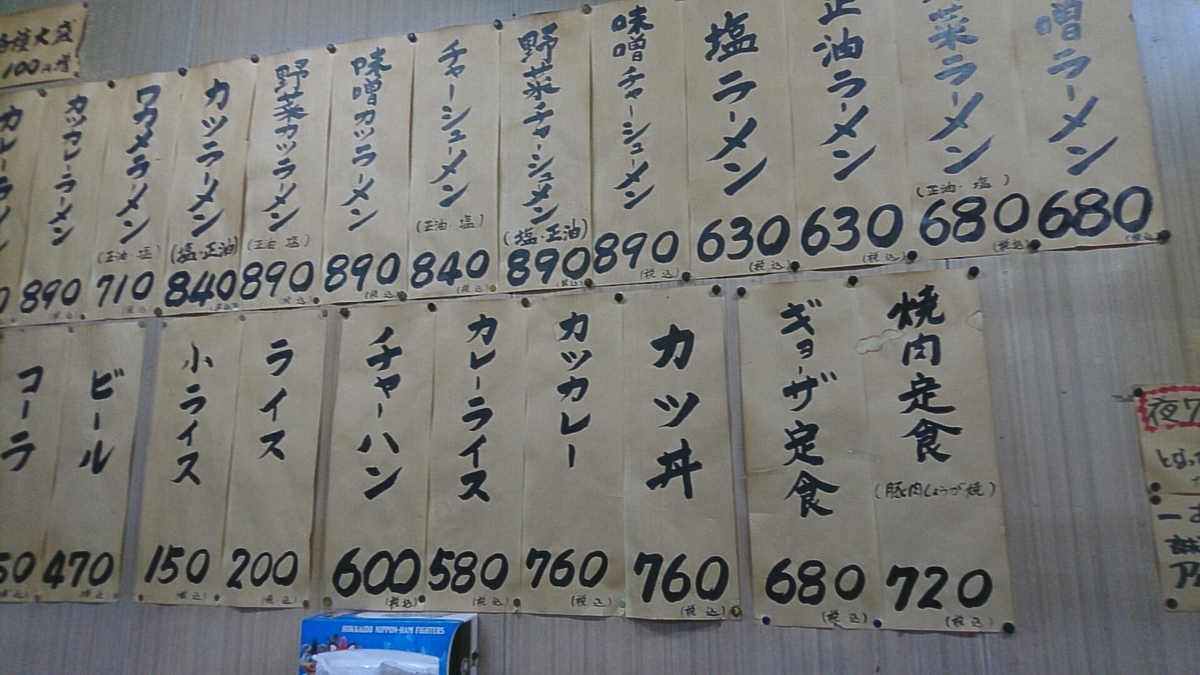 噌ラーメン
680
(税込)
菜ラーメン
(正油・塩)
680
(税込)
正油ラーメン
630
(税込)
塩ラーメン
630
(税込)
味噌チャーシューメン
890
(税込)
野菜チャーシュメン
(塩・正油)
890
(税込)
チャーシューメン
(正油・塩)
840
(税込)
味噌カツラーメン
890
(税込)
野菜カツラーメン
(正油・塩)
890
(税込)
カツラーメン
(塩・正油)
840
(税込)
ワカメラーメン
(正油・塩)
710
(税込)
カツカレーラーメン
890
(税込)
カレーラーメン
0
各種大盛
100円増
焼肉定食
(豚肉しょうが焼)
720
(税込)
ギョーザ定食
680
(税込)
カツ丼
760
(税込)
カツカレー
760
(税込)
カレーライス
580
(税込)
チャーハン
600
(税込)
ライス
200
(税込)
小ライス
150
(税込)
ビール
470
(税込)
コーラ
50
(税込)
夜7
HOKKAIDO NIPPON-HAM FIGHTERS